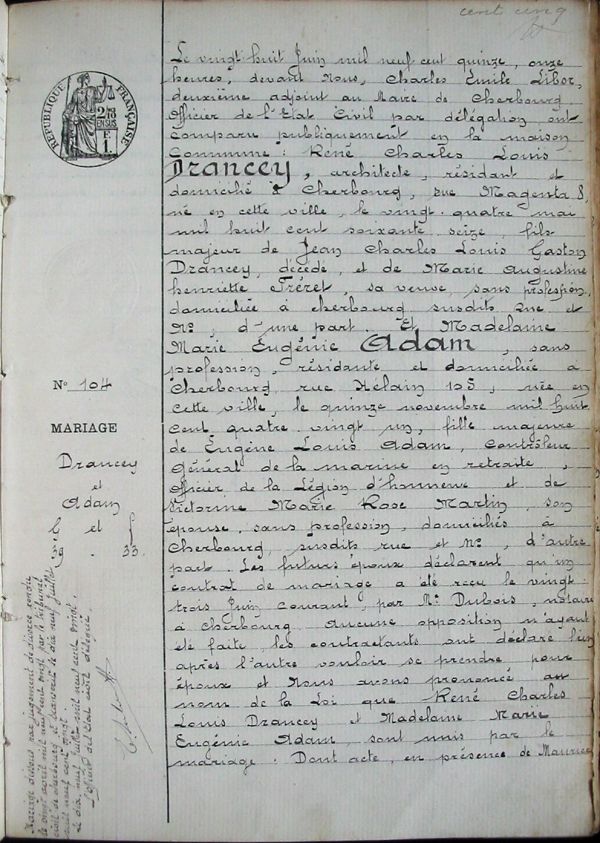 cent cinq
RÉPUBLIQUE FRANÇAISE
2/10 EN SUS
Le vingt huit Juin mil neuf cent quinze, onze
heures, devant Nous, Charles Emile Libor,
deuxième adjoint au Maire de Cherbourg
Officier de l'Etat Civil par délégation ont
comparu publiquement en la maison
Commune : René Charles Louis
Drancey, architecte, résidant et
domicilié à Cherbourg, rue Magenta 8,
né en cette ville, le vingt-quatre mai
mil huit cent soixante seize, fils
majeur de Jean Charles Louis Gaston
Drancey, décédé, et de Marie Augustine
henriette Fréret, sa veuve, sans profession,
domiciliée à cherbourg susdits rue et
No, d'une part. Et Madelaine
Marie Eugénie Adam, sans
profession, résidante et domiciliée à
Cherbourg, rue Hélain 105, née en
cette ville, le quinze novembre mil huit
cent quatre vingt un, fille majeure
de Eugène Louis Adam, Contrôleur
Général de la marine en retraite,
Officier de la Légion d'honneur et de
Victorine Marie Rose Martin, son
épouse, sans profession, domiciliés à
Cherbourg, susdits rue et No, d'autre
part. Les futurs époux déclarent qu'un
contrat de mariage a été reçu le vingt
trois Juin courant, par Me Dubois, notaire
à cherbourg. Aucune opposition n'ayant
été faite, les contractants ont déclaré l'un
après l'autre vouloir se prendre pour
époux et Nous avons prononcé au
nom de la Loi que René Charles
Louis Drancey et Madelaine Marie
Eugénie Adam, sont unis par le
mariage. Dont acte, en présence de Maurice
No 104
MARIAGE
Drancey
et
Adam
g. et f.
39. 33.
Mariage dissous par jugement de divorce rendu
le vingt avril mil neuf cent vingt par le tribunal
civil de cherbourg et transcrit le dix neuf juillet
mil neuf cent vingt.
Le dix neuf juillet mil neuf cent vingt.
L'officier de l'Etat civil délégué.